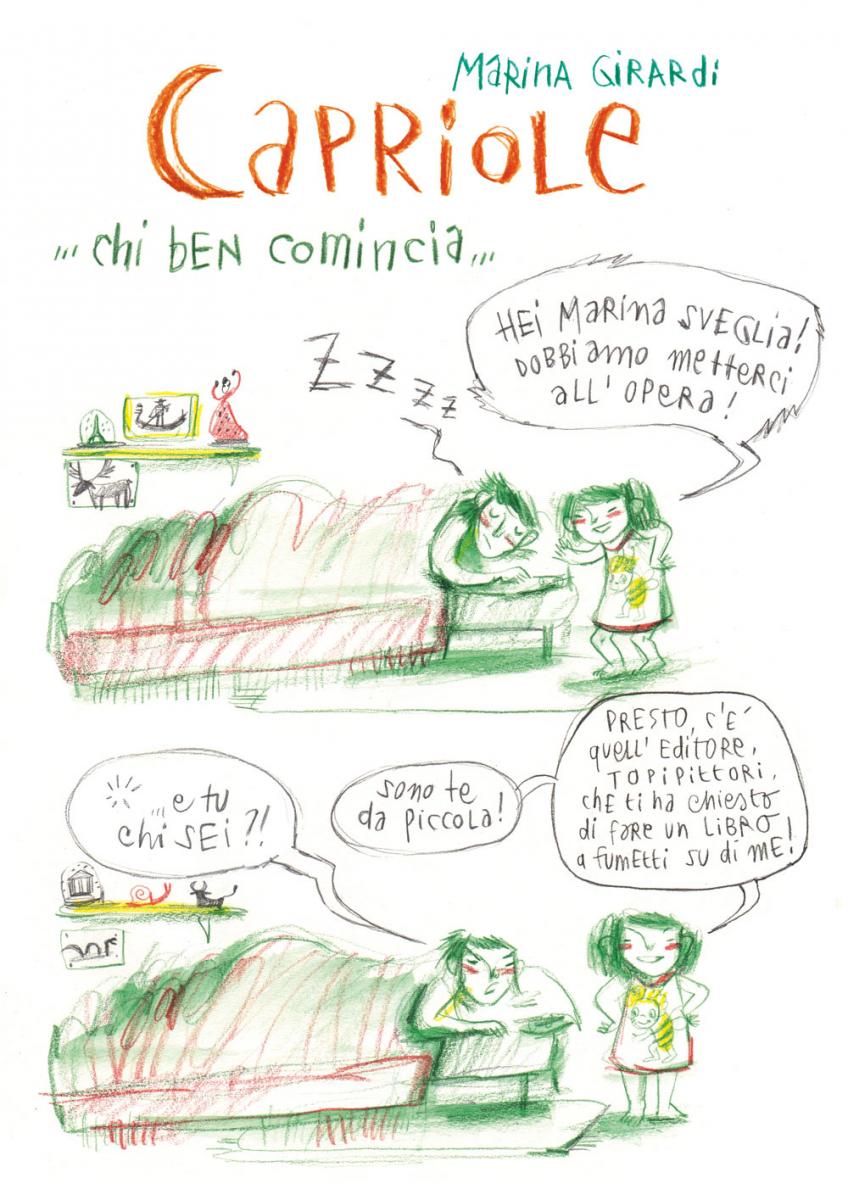 MARINA GIRARDI
CAPRIOLE
... chi bEN comincia...
HEI MARINA SVEGLIA!
DOBBIAMO METTERCI
ALL'OPERA!
Z Z Z Z
... e tu
chi SEI?!
sono te
da piccola!
PRESTO, C'E'
quell'EDITORE,
TOPIPITTORI,
CHE ti ha chiesto
di fare un LIBRO
a fumetti su di ME!